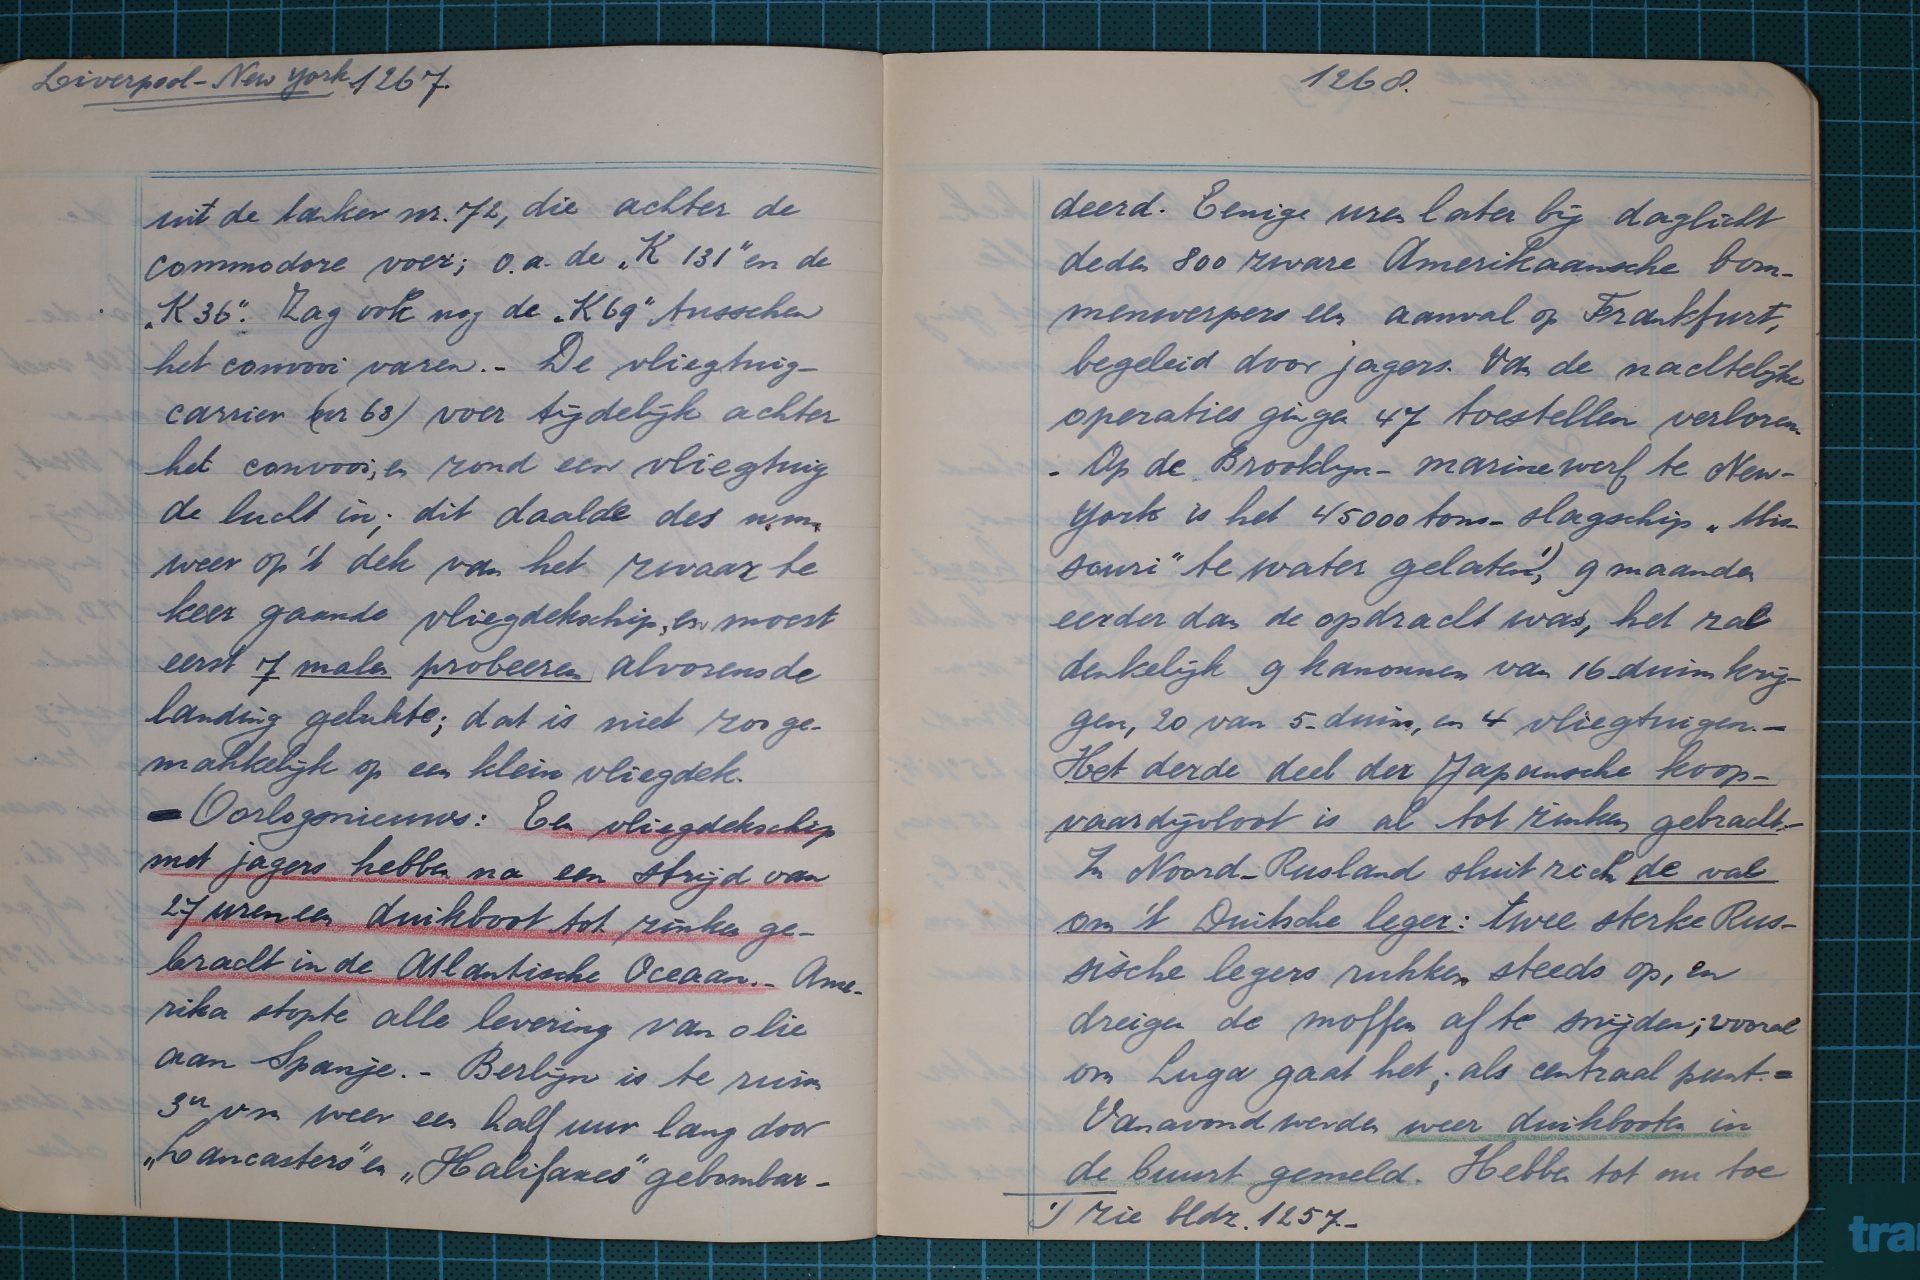 Liverpool-New York 1267.
uit de tanker nr. 72, die achter de
commodore voer; o.a. de „K 131" en de
„K 36". Zag ook nog de „K69" tusschen
het convooi varen.- De vliegtuig-
carrier (nr 63) voer tijdelijk achter
het convooi, en zond een vliegtuig
de lucht in; dit daalde des n.m.
weer op 't dek van het zwaar te
keer gaande vliegdekschip, en moest
eerst 7 malen probeeren alvorens de
landing gelukte; dat is niet zoo ge-
makkelijk op een klein vliegdek.
- Oorlogsnieuws: Een vliegdekschip
met jagers hebben na een strijd van
27 uren een duikboot tot zinken ge-
bracht in de Atlantische Oceaan.- Ame-
rika stopte alle levering van olie
aan Spanje.- Berlijn is te ruim
3u vm weer een half uur lang door
„Lancasters" en „Halifaxes" gebombar-
1268.
deerd. Eenige uren later bij daglicht
deden 800 zware Amerikaansche bom-
menwerpers een aanval op Frankfurt,
begeleid door jagers. Van de nachtelijke
operaties gingen 47 toestellen verloren
- Op de Brooklyn-marinewerf te New-
York is het 45000 tons-slagschip „Mis-
souri" te water gelaten¹), 9 maanden
eerder dan de opdracht was, het zal
denkelijk 9 kanonnen van 16-duim krij-
gen, 20 van 5-duim, en 4 vliegtuigen.-
Het derde deel der Japansche koop-
vaardijvloot is al tot zinken gebracht.-
In Noord-Rusland sluit zich de val
om 't Duitsche leger: twee sterke Rus-
sische legers rukken steeds op, en
dreigen de moffen af te snijden; vooral
om Luga gaat het, als centraal punt.=
Vanavond werden weer duikbooten in
de buurt gemeld. Hebben tot nu toe
¹) Zie bldz. 1257.-
tra